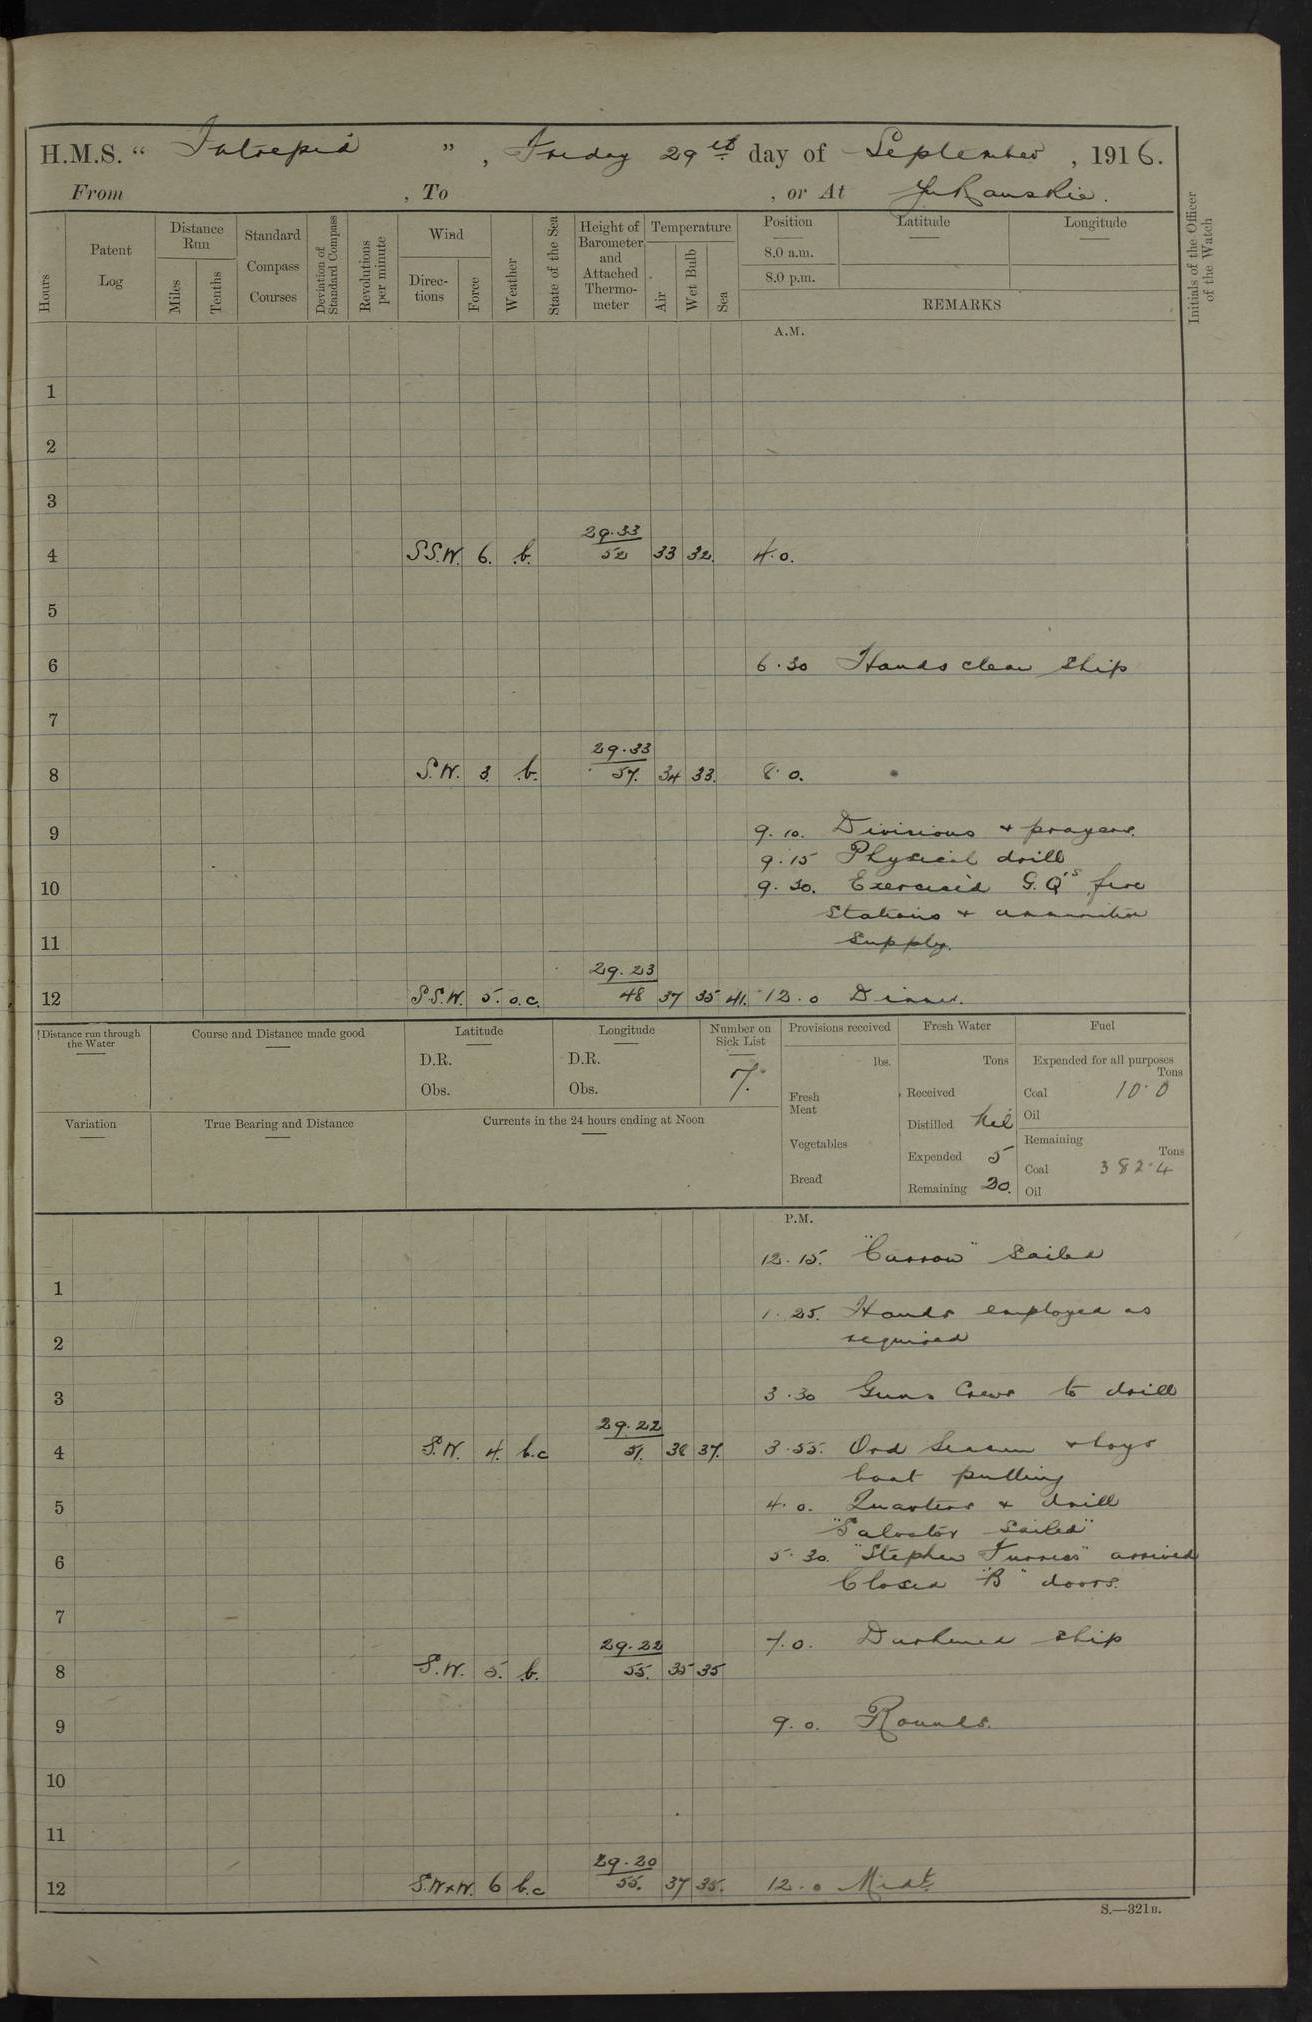 H.M.S. " Intrepid ", Friday 29th day of September, 1916.
From , To , or At Yukanskie.
Hours
Patent Log
Distance Run
Miles
Tenths
Standard Compass Courses
Deviation of Standard Compass
Revolutions per minute
Wind
Directions
Force
Weather
State of the Sea
Height of Barometer and Attached Thermometer
Temperature
Air
Wet Bulb
Sea
Position
8.0 a.m.
8.0 p.m.
Latitude
Longitude
REMARKS
Initials of the Officer of the Watch
A.M.
1
2
3
29.33
4 S.S.W. 6. b. 52 33 32. 4.0.
5
6 6.30 Hands clean ship
7
29.33
8 S.W. 3. b. 57. 34 33. 8.0.
9 9.10. Divisions & prayers.
9.15 Physical drill
10 9.30. Exercised G.Q's fire
stations & ammunition
11 supply.
29.23
12 S.S.W. 5. o.c. 48 37 35 41. 12.0 Dinner.
Distance run through the Water
Course and Distance made good
Latitude
D.R.
Obs.
Longitude
D.R.
Obs.
Number on Sick List
7.
Provisions received
lbs.
Fresh Meat
Vegetables
Bread
Fresh Water
Tons
Received
Distilled Nil
Expended 5
Remaining 20.
Fuel
Expended for all purposes
Tons
Coal 10.0
Oil
Remaining
Tons
Coal 382.4
Oil
Variation
True Bearing and Distance
Currents in the 24 hours ending at Noon
P.M.
12.15. "Curron" sailed
1
1.25. Hands employed as
2 required
3 3.30 Guns Crews to drill
29.22
4 S.W. 4. b.c 51. 38 37. 3.55. Ord Seamen & boys
boat pulling
5 4.0. Quarters & drill
"Salvator sailed"
6 5.30. "Stephen Furness" arrived
Closed "B" doors.
7
29.22
7.0. Darkened ship
8 S.W. 5. b. 55. 35 35
9 9.0. Rounds.
10
11
29.20
12 S.WxW. 6 b.c 55. 37 35. 12.0 Midt.
S.—321B.